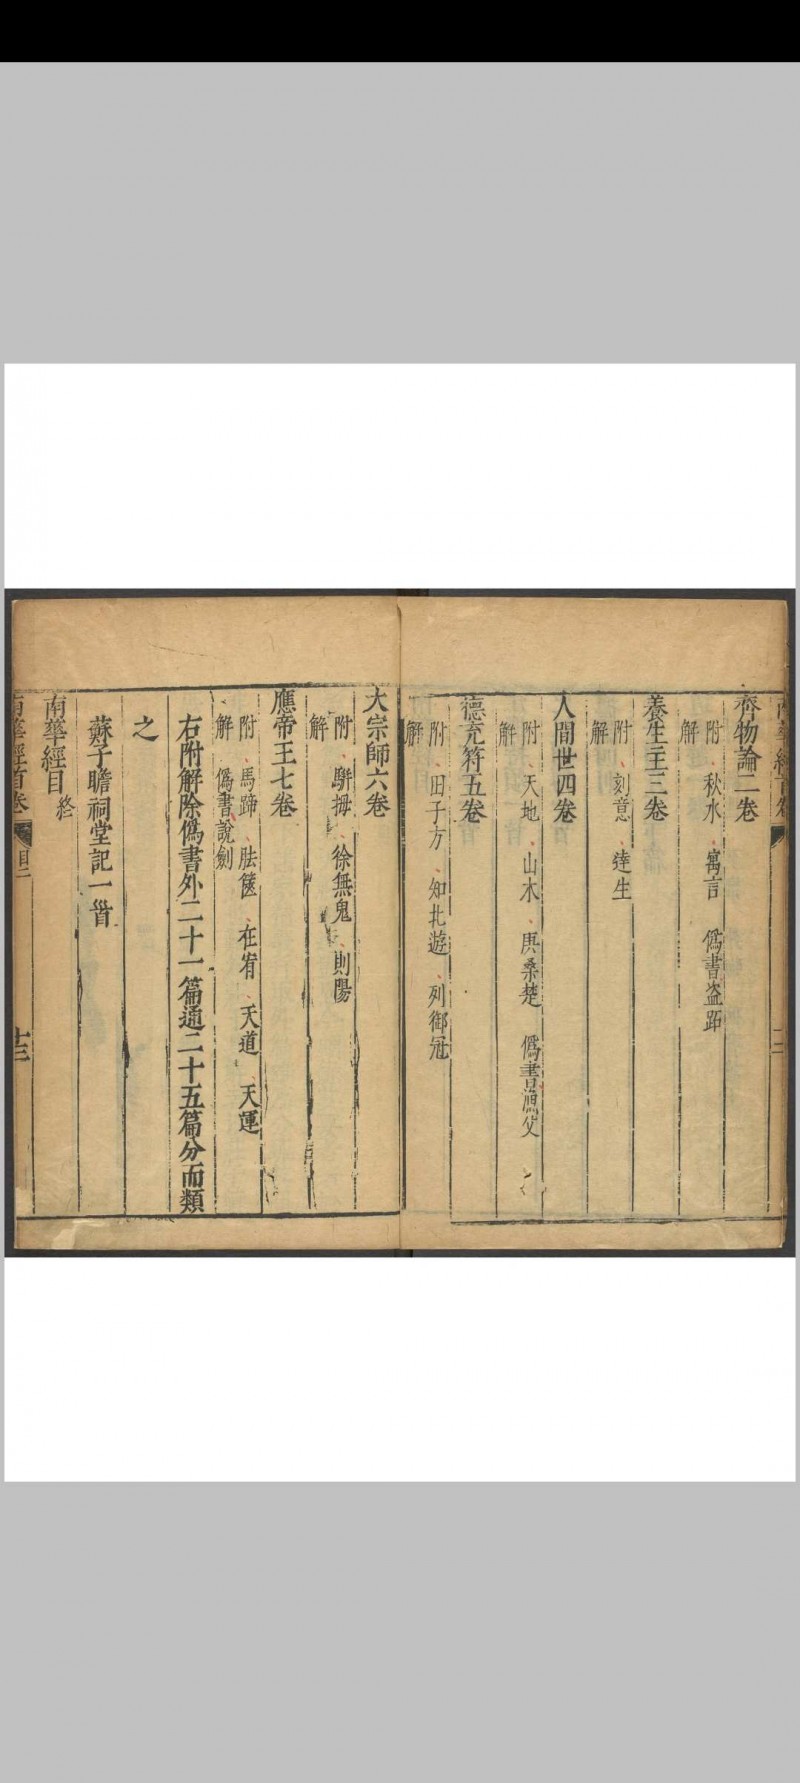 齊物論二卷
附解 秋水、寓言 偽書盜跖
養生主三卷
附解、刻意、達生
人間世四卷
附解、天地、山水、庚桑楚 偽書漁父
德充符五卷
附解、田子方、知北遊、列御冠
大宗師六卷
附解、駢拇、徐無鬼、則陽
應帝王七卷
附解、馬蹄、胠篋、在宥、天道、天運
偽書說劍
右附解除偽書外二十一篇通二十五篇分而類
之
蘇子瞻祠堂記一首
南華經目 終
南華經首卷 目二 十三